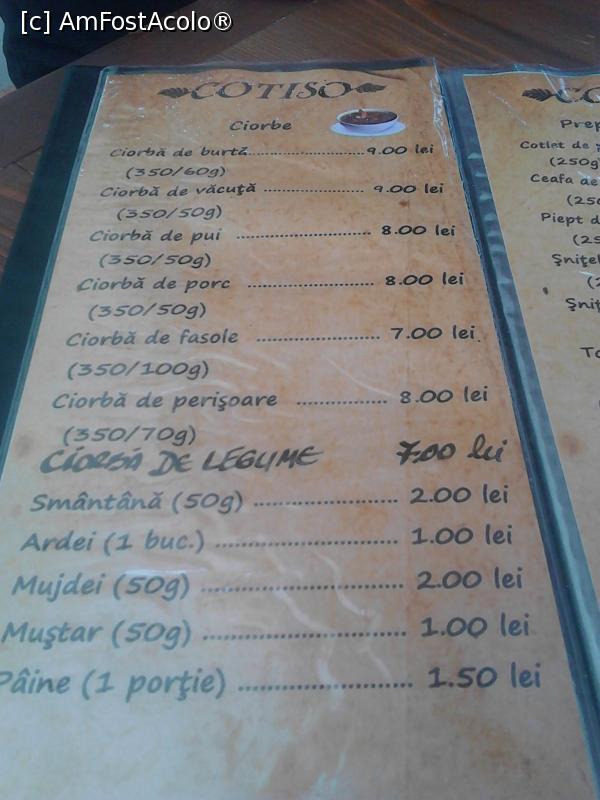 [c] AmFostAcolo®
COTISO
Ciorbe
Ciorbă de burtă 9.00 lei
(350/60g)
Ciorbă de văcuţă 9.00 lei
(350/50g)
Ciorbă de pui 8.00 lei
(350/50g)
Ciorbă de porc 8.00 lei
(350/50g)
Ciorbă de fasole 7.00 lei
(350/100g)
Ciorbă de perişoare 8.00 lei
(350/70g)
CIORBĂ DE LEGUME 7.00 lei
Smântână (50g) 2.00 lei
Ardei (1 buc.) 1.00 lei
Mujdei (50g) 2.00 lei
Muştar (50g) 1.00 lei
Pâine (1 porţie) 1.50 lei
Cotlet de
(250g
Ceafa de
Piept d